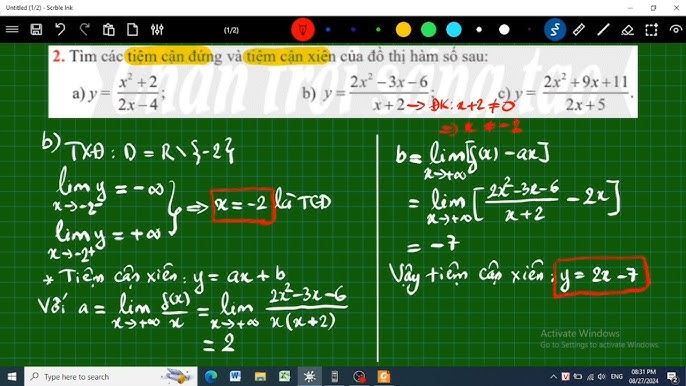 Untitled (1/2) - Scrble Ink
(1/2)
2. Tìm các tiệm cận đứng và tiệm cận xiên của đồ thị hàm số sau:
a) y = (x² + 2)/(2x − 4);
b) y = (2x² − 3x − 6)/(x + 2);
c) y = (2x² + 9x + 11)/(2x + 5).
→ ĐK: x + 2 ≠ 0
⇒ x ≠ −2
b) TXĐ: D = R \ {−2}
lim y = −∞
x→−2⁻
lim y = +∞
x→−2⁺
⇒ x = −2 là TCĐ
* Tiệm cận xiên: y = ax + b
Với a = lim f(x)/x = lim (2x² − 3x − 6)/(x(x + 2))
x→+∞ x→+∞
= 2
b = lim [f(x) − ax]
x→+∞
= lim [(2x² − 3x − 6)/(x + 2) − 2x]
x→+∞
= −7
Vậy tiệm cận xiên: y = 2x − 7
Activate Windows
Go to Settings to activate Windows.
Type here to search
ENG
08:31 PM
08/27/2024